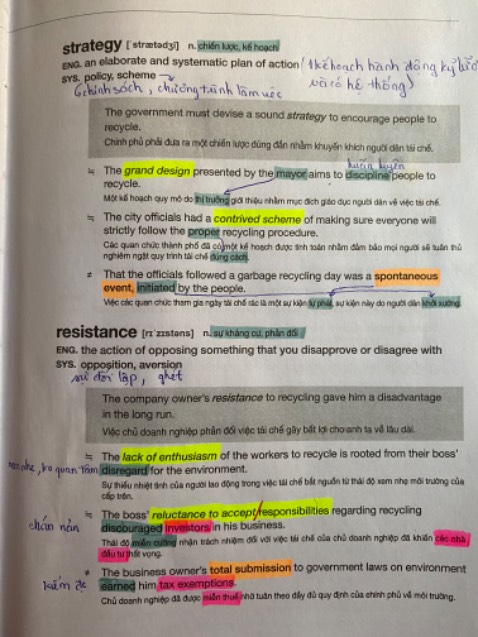 strategy [ˈstrætədʒi] n. chiến lược, kế hoạch
ENG. an elaborate and systematic plan of action (1 kế hoạch hành động kỹ
và có hệ thống)
SYS. policy, scheme
chính sách, chương trình làm việc
The government must devise a sound strategy to encourage people to
recycle.
Chính phủ phải đưa ra một chiến lược đúng đắn nhằm khuyến khích người dân tái chế.
huấn luyện
≒ The grand design presented by the mayor aims to discipline people to
recycle.
Một kế hoạch quy mô do thị trưởng giới thiệu nhằm mục đích giáo dục người dân về việc tái chế.
≒ The city officials had a contrived scheme of making sure everyone will
strictly follow the proper recycling procedure.
Các quan chức thành phố đã có một kế hoạch được tính toán nhằm đảm bảo mọi người sẽ tuân thủ
nghiêm ngặt quy trình tái chế đúng cách.
≠ That the officials followed a garbage recycling day was a spontaneous
event, initiated by the people.
Việc các quan chức tham gia ngày tái chế rác là một sự kiện tự phát, sự kiện này do người dân khởi xướng.
resistance [rɪˈzɪstəns] n. sự kháng cự, phản đối
ENG. the action of opposing something that you disapprove or disagree with
SYS. opposition, aversion
sự đối lập, ghét
The company owner's resistance to recycling gave him a disadvantage
in the long run.
Việc chủ doanh nghiệp phản đối việc tái chế gây bất lợi cho anh ta về lâu dài.
≒ The lack of enthusiasm of the workers to recycle is rooted from their boss'
nhẹ, ko quan tâm disregard for the environment.
Sự thiếu nhiệt tình của người lao động trong việc tái chế bắt nguồn từ thái độ xem nhẹ môi trường của
cấp trên.
≒ The boss' reluctance to accept responsibilities regarding recycling
chán nản discouraged investors in his business.
Thái độ miễn cưỡng nhận trách nhiệm đối với việc tái chế của chủ doanh nghiệp đã khiến các nhà
đầu tư thất vọng.
≠ The business owner's total submission to government laws on environment
kiếm đc earned him tax exemptions.
Chủ doanh nghiệp đã được miễn thuế nhờ tuân theo đầy đủ quy định của chính phủ về môi trường.